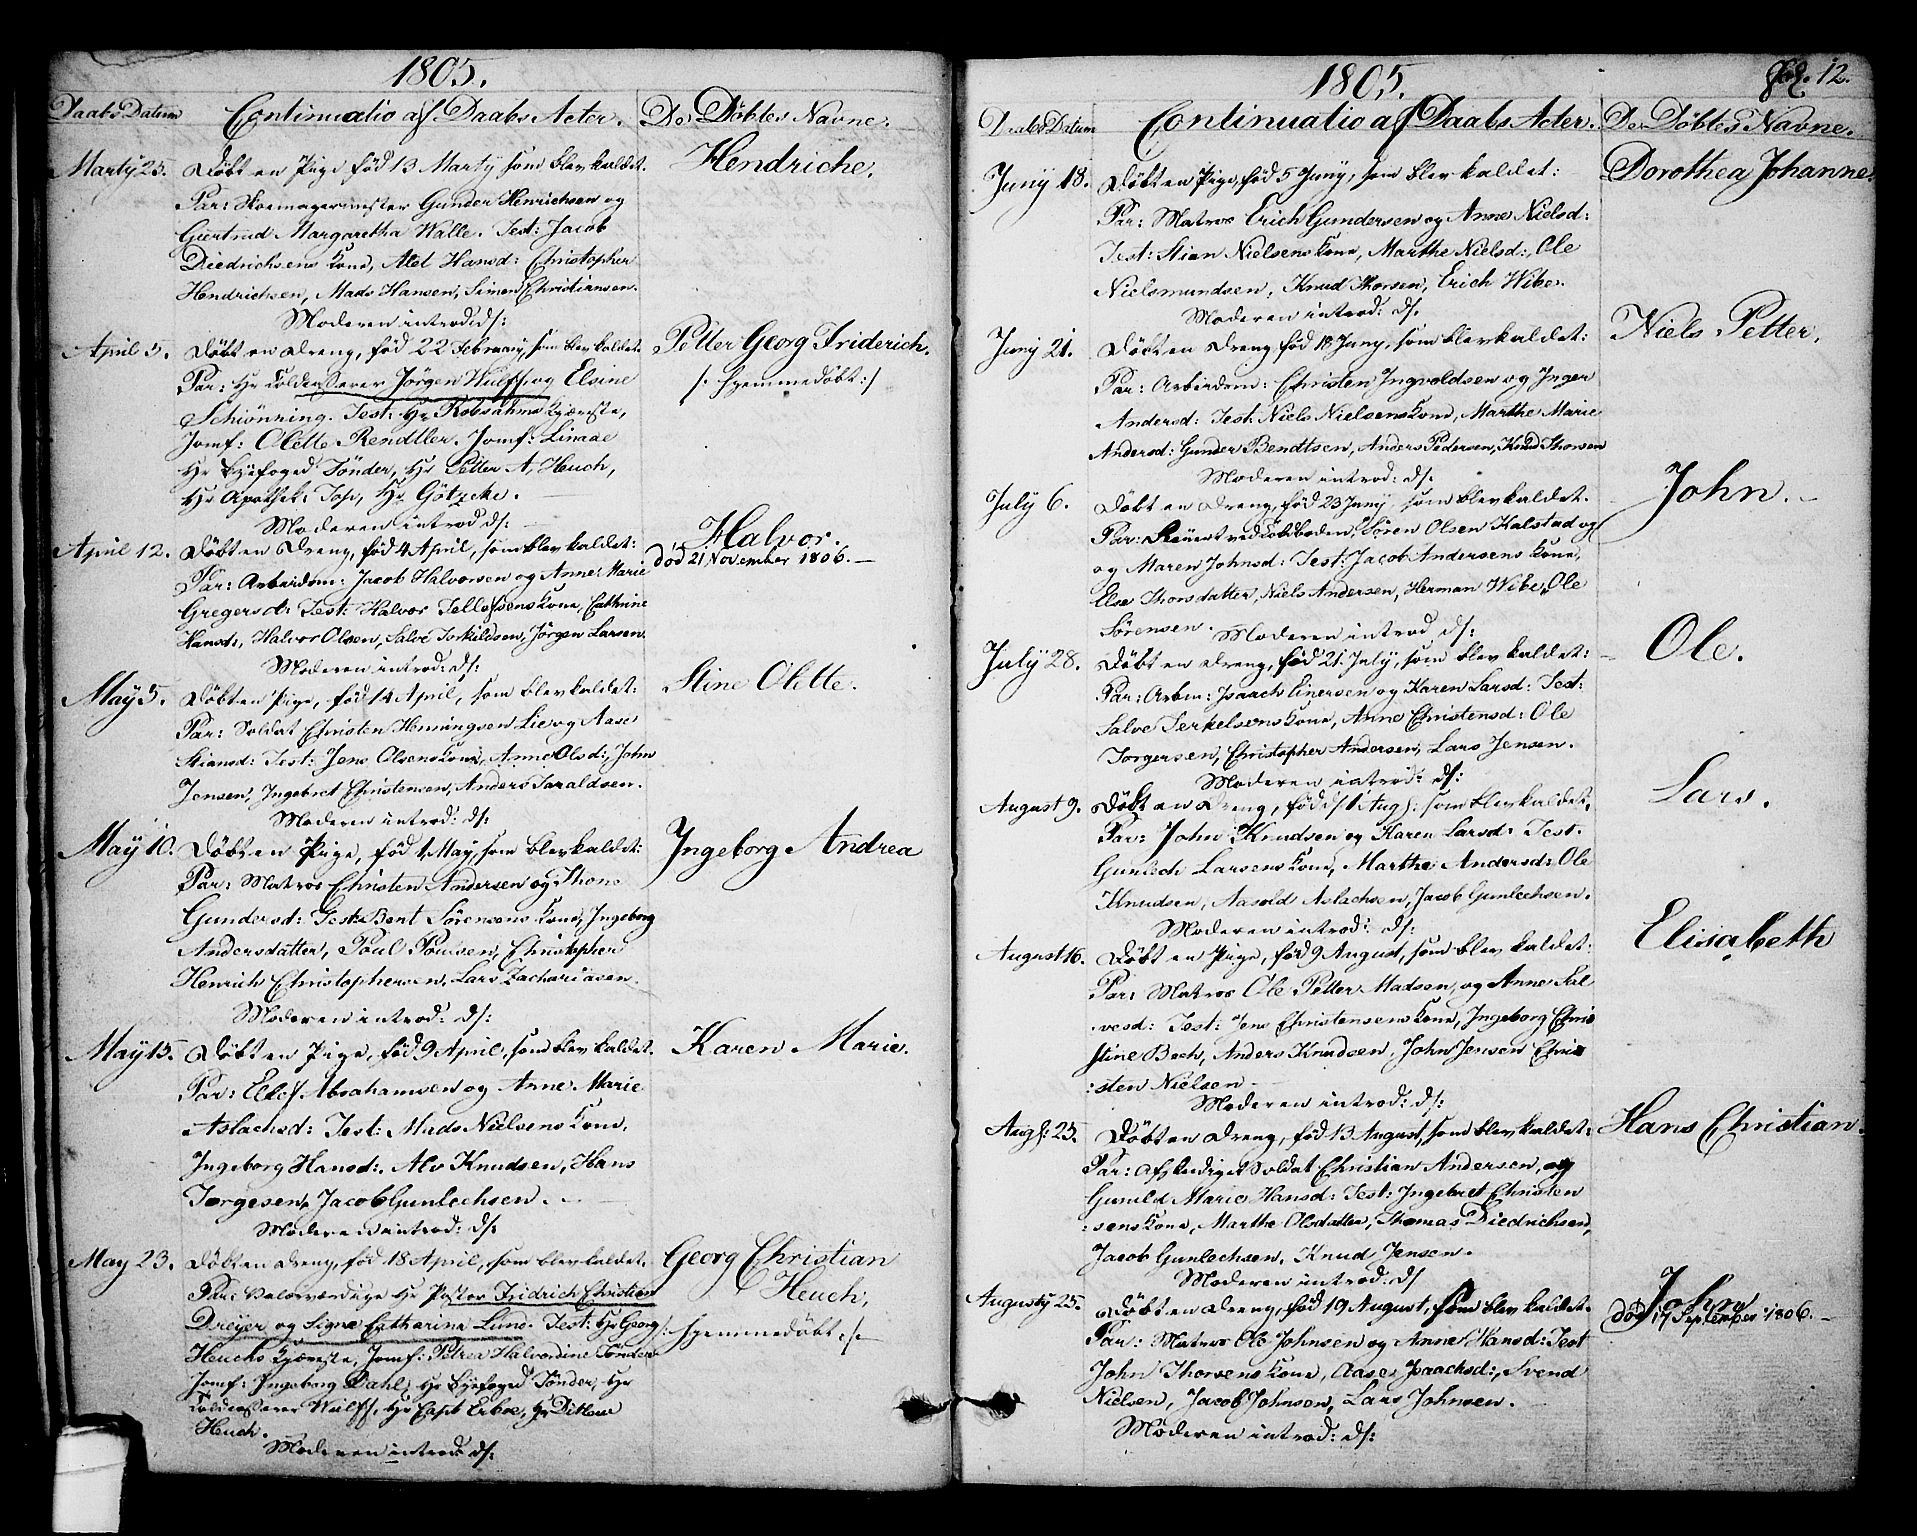 1805.
Daabs Datum Continuatio af Daabs Acter. De Döbtes Navne.
Marty 25. Döbt en Pige fód 13 Marty som blev kaldet. Hendriche.
Par: Skoemagermester Gunder Henrichsen og
Giertrud Margaretha Walle. Test: Jacob
Diedrichsens Kone, Alet Hansd: Christopher
Hendrichsen, Mads Hansen, Simen Christiansen.
Moderen introd: ds:
April 5. Döbt en Dreng, fód 22 February, som blev kaldet. Petter Georg Friderich.
Par: Hr Toldcasserer Jörgen Wulff og Elsine /: hjemmedöbt :/
Schiönning. Test: Hr Robsahms Kjæreste,
Jomf: Olette Rendtler. Jomf: Linaae
Hr Byefoged Tönder, Hr Petter A, Heuch,
Hr Apothek: Top, Hr Götzche.
Moderen introd ds:
April 12. Döbt en Dreng, fód 4 April, som blev kaldet: Halvor.
Par: Arbeidsm: Jacob Halvorsen og Anne Marie död 21 November 1806.
Gregersd: Test: Halvor Tellefsens Kone, Cathrine
Hansd:, Halvor Olsen, Salve Torkildsen, Jörgen Larsen.
Moderen introd: ds:
May 5. Döbt en Pige, fód 14 April, som blev kaldet: Stine Olette.
Par: Soldat Christen Hemingsen Lie og Aase
Stiansd: Test: Jens Olsens Kone, Anne Olsd:, John
Jensen, Ingebret Christensen, Anders Taraldsen.
Moderen introd: ds:
May 10. Döbt en Pige, fód 1 May, som blev kaldet: Ingeborg Andrea
Par: Matros Christen Andersen og Thone
Gundersd: Test: Bent Sörensens Kone, Ingeborg
Andersdatter, Poul Poulsen, Christopher
Henrich Christophersen, Lars Zachariasen.
Moderen introd: ds:
May 15. Döbt en Pige, fód 9 April, som blev kaldet. Karen Marie.
Par: Ellef Abrahamsen og Anne Marie
Aslachsd: Test: Mads Nielsens Kone,
Ingeborg Hansd:. Alv Knudsen, Hans
Torgesen, Jacob Gunlechsen.
Moderen introd: ds:
May 23. Döbt en Dreng, fód 18 April, som blev kaldet. Georg Christian
Par: Velærværdige Hr Pastor Fridrich Christian Heuch,
Dreyer og Signe Catharina Lund. Test: Hr Georg /: hjemmedöbt :/
Heuchs Kjæreste, Jomf: Petrea Halvordine Tönder
Jomf: Ingeborg Dahl, Hr Byefoged Tönder, Hr
Toldcasserer Wulff, Hr Capt Erboe, Hr Ditlew
Heuch.
Moderen introd: ds:
1805. Fol. 12.
Daabs Datum Continuatio af Daabs Acter. De Döbtes Navne.
Juny 18. Döbt en Pige, fód 5 Juny, som blev kaldet: Dorothea Johanne.
Par: Matros Erich Gundersen og Anne Nielsd:
Test: Stian Nielsens Kone, Marthe Nielsd:, Ole
Nielsmundsen, Knud Thorsen, Erich Wibe.
Moderen introd: ds.
Juny 21. Döbt en Dreng fód 18 Juny, som blev kaldet: Niels Petter.
Par: Arbeidsm: Christen Ingvoldsen og Inger
Andersd: Test: Niels Nielsens Kone, Marthe Marie
Andersd: Gunder Bendtsen, Anders Pedersen, Knud Thorsen
Moderen introd: ds:
July 6. Döbt en Dreng, fód 23 Juny, som blev kaldet. John.
Par: ved Toldboden, Sören Olsen Kalstad og
og Maren Johnsd: Test: Jacob Andersens Kone,
Else Thorsdatter, Niels Andersen, Herman Wibe, Ole
Sörensen. Moderen introd. ds:
July 28. Döbt en Dreng, fód 21 July, som blev kaldet: Ole.
Par: Arbm: Isaach Einersen og Karen Larsd: Test:
Salve Terkelsens Kone, Anne Christensd: Ole
Torgersen, Christopher Andersen, Lars Jensen.
Moderen introd: ds:
August 9. Döbt en Dreng, fód d/ 1 Aug: som blev kaldet. Lars.
Par: John Knudsen og Karen Larsd: Test.
Gunlech Larsens Kone, Marthe Andersd: Ole
Knudsen, Aasold Aslachsen, Jacob Gunlechsen.
Moderen introd: ds:
August 16. Döbt en Pige, fód 9 August, som blev kaldet: Elisabeth
Par: Matros Ole Petter Madsen, og Anne Sal
vesd: Test: Jens Christensens Kone, Ingeborg Chri
stine Bech, Anders Knudsen, John Jensen Chri
:sten Nielsen
Moderen introd: ds:
Augs: 25. Döbt en Dreng, fód 13 August, som blev kaldet: Hans Christian.
Par: Afskediget Soldat Christian Andersen, og
Gunild Marie Hansd: Test: Ingebret Christen
:sens Kone, Marthe Olsdatter, Thomas Diedrichsen,
Jacob Gunlechsen, Knud Jensen.
Moderen introd: ds
Augusty 25. Döbt en Dreng, fód 19 August, som blev kaldet. John
Par: Matros Ole Johnsen og Anne Hansd: Test död 17 September 1806.
John Thorsens Kone, Aase Isaachsd:, Svend
Nielsen, Jacob Johnsen, Lars Johnsen.
Moderen introd: ds: